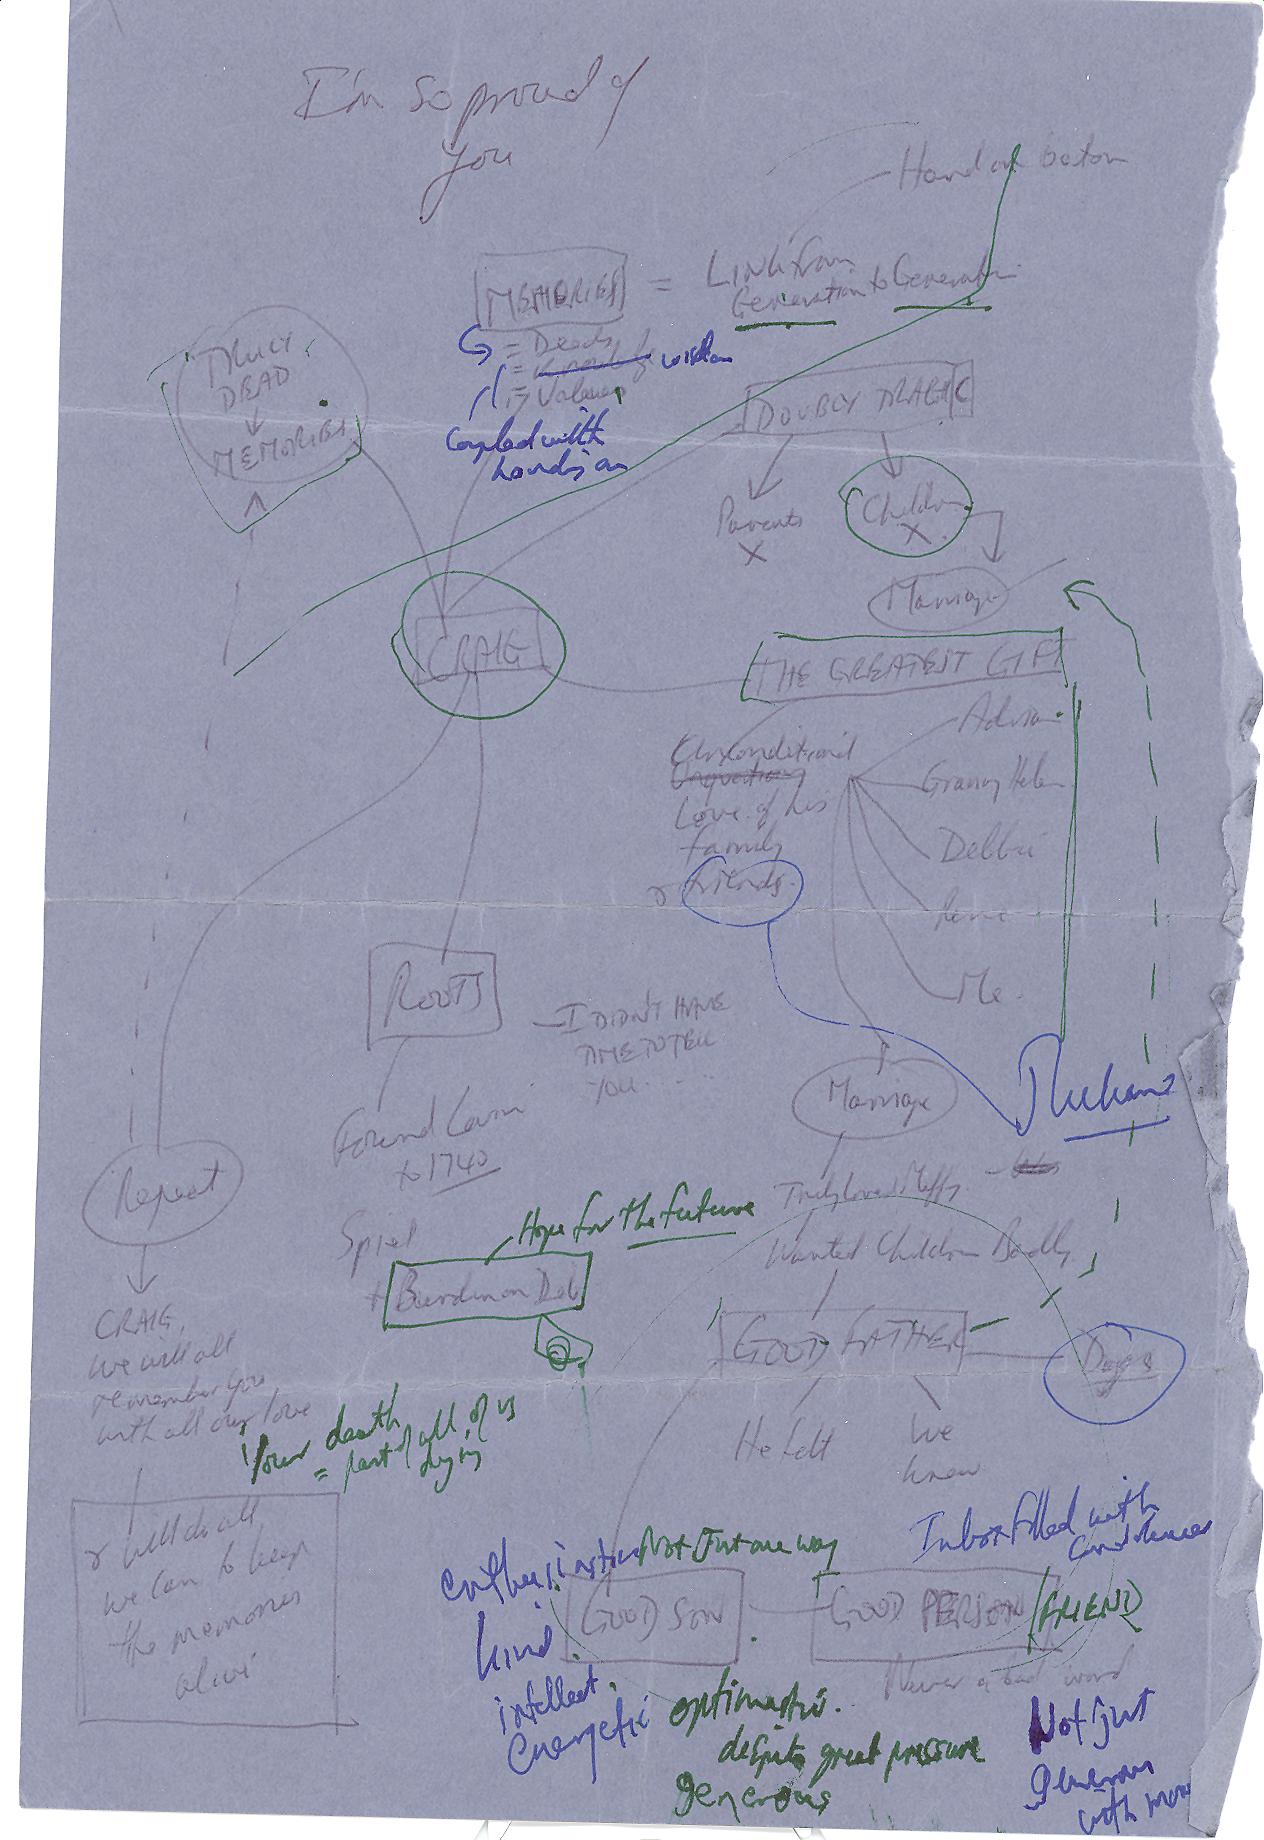 I'm so proud of
you
Hand on baton
MEMORIES = LINK from
Generation to Generation
= Deeds
wisdom
= Values
Coupled with
TRULY
DEAD
MEMORIES
DOUBLY TRAGIC
Parents
X
Children
X
Marriage
CRAIG
THE GREATEST GIFT
Unconditional
Love of his
family
& friends.
Granny Helen
Debbie
Me.
ROOTS
I DIDN'T HAVE
TIME TO TELL
YOU....
Found
to 1740
Spiel
+ Burden on Deb
Hope for the future
Marriage
Truly loved
Wanted Children Badly
GOOD FATHER
He felt
We
knew
Repeat
CRAIG,
we will all
remember you
with all our love
Your death
= part of all of us
dying
& will do all
we can to keep
the memories
alive
enthusiastic
Not Just one way
Inbox filled with
condolences
kind
GOOD SON
GOOD PERSON / FRIEND
Never a bad word
intellect
energetic
optimistic
despite great pressure
generous
Not just
generous
with